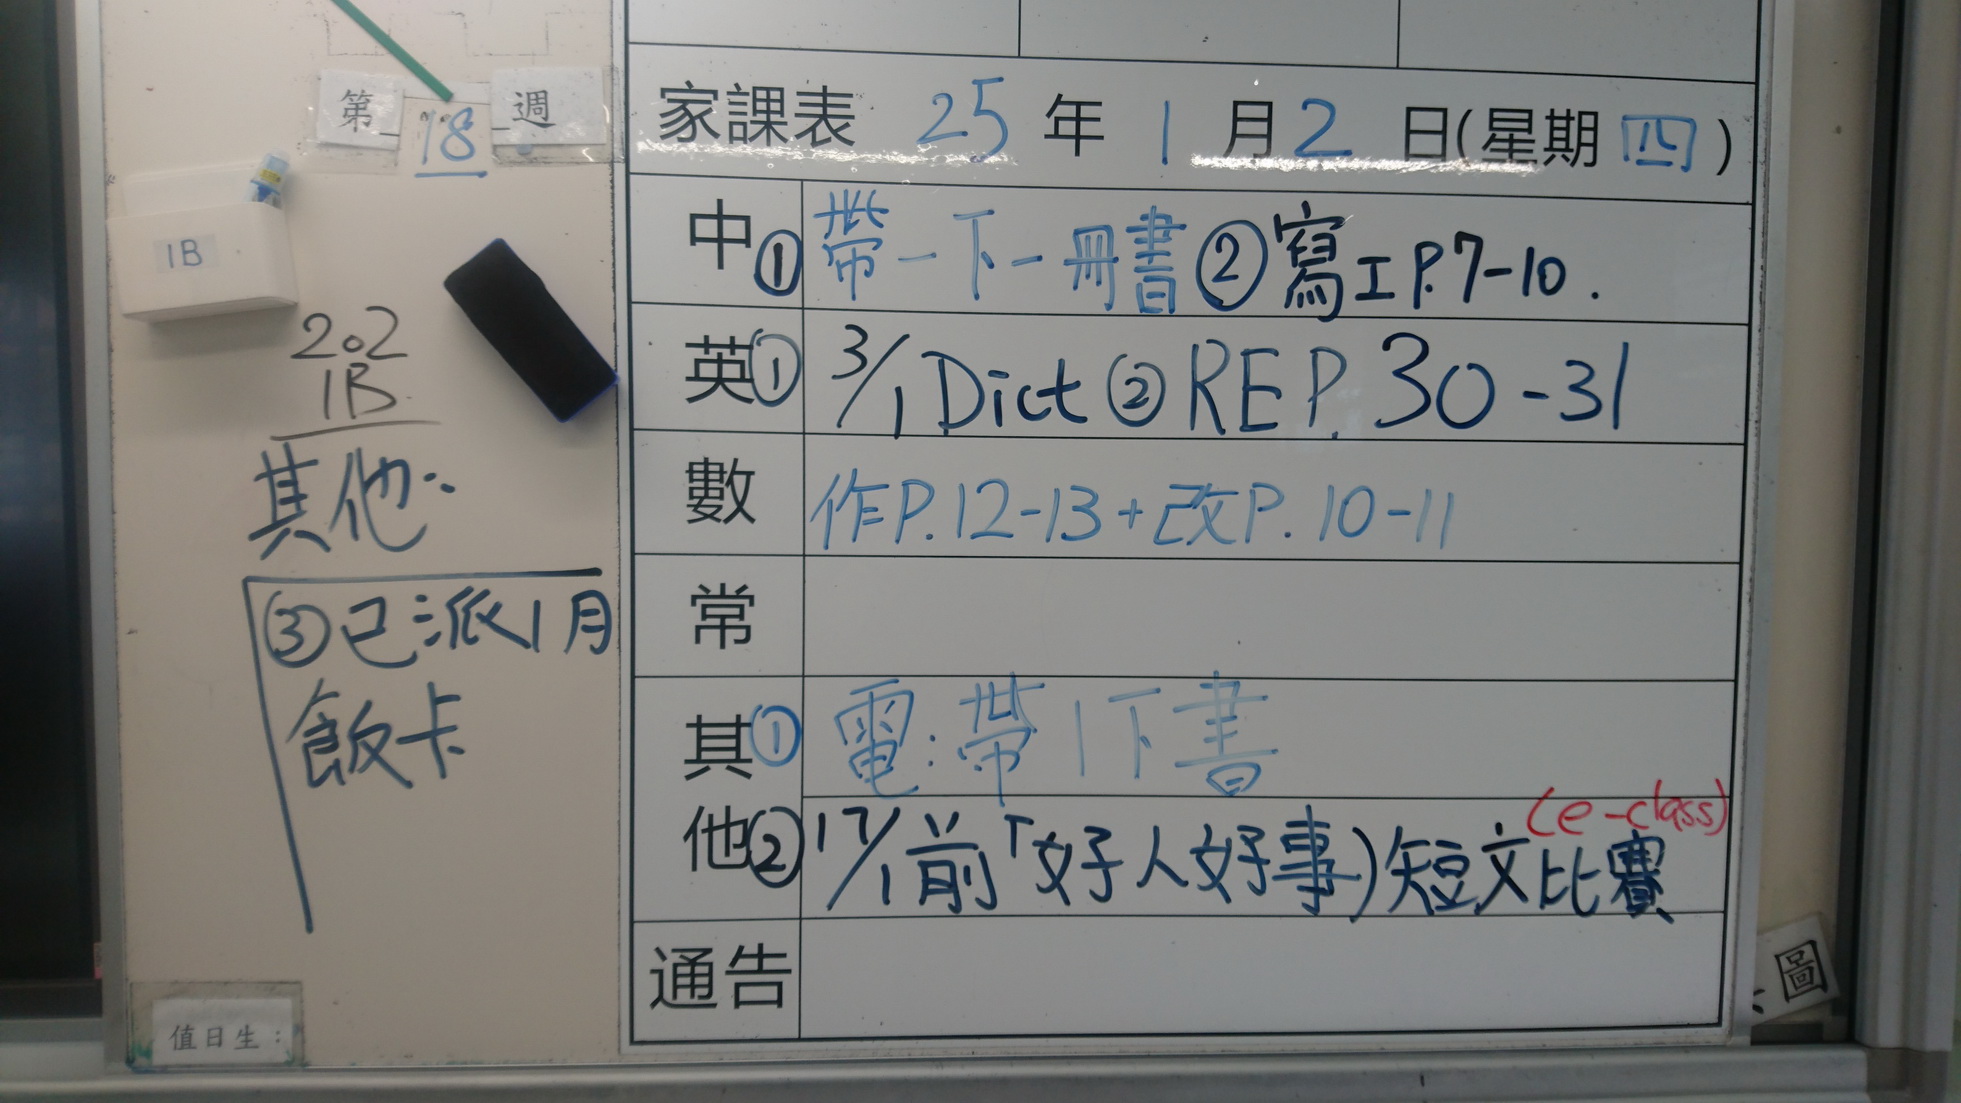 第 18 週
1B
202
1B
其他:
③已派1月
飯卡
值日生:
家課表 25 年 1 月 2 日(星期 四)
中 ① 帶一下一冊書 ② 寫工P.7-10.
英 ① 3/1 Dict ② RE P.30-31
數 作P.12-13+改P.10-11
常
其他 ① 電:帶1下書
② 17/1前「好人好事)短文比賽 (e-class)
通告
圖